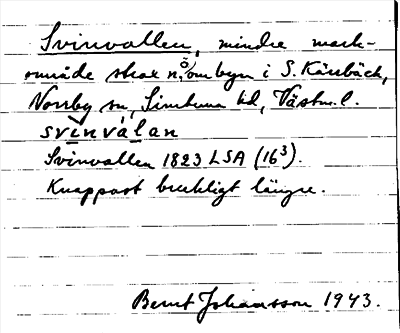 Svinvallen, mindre mark-
område strax n.ö. om byn i S. Kärrbäck,
Norrby sn, Simtuna hd, Västm. l.
svìnválan
Svinvallen 1823 LSA (16³).
Knappast brukligt längre.
Bernt Johansson 1943.